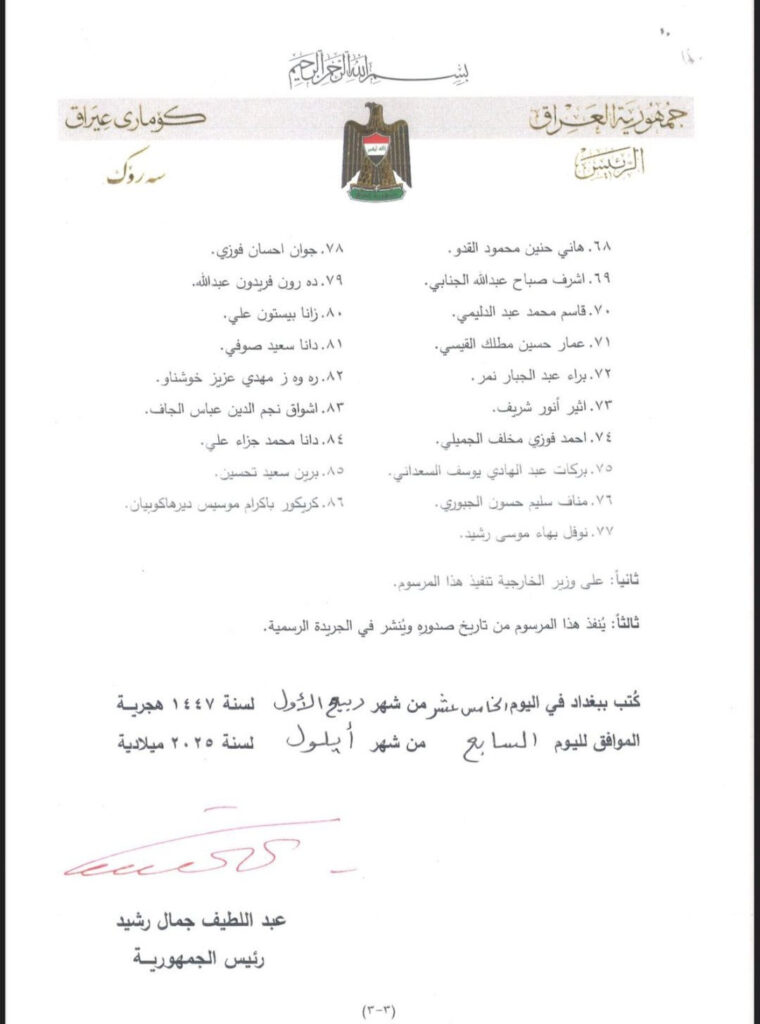 بسم الله الرحمن الرحيم
جمهورية العراق
الرئيس
كۆماری عێراق
سەرۆك
الله أكبر
٦٨. هاني حنين محمود القدو.
٦٩. اشرف صباح عبدالله الجنابي.
٧٠. قاسم محمد عبد الدليمي.
٧١. عمار حسين مطلك القيسي.
٧٢. براء عبد الجبار نمر.
٧٣. اثير أنور شريف.
٧٤. احمد فوزي مخلف الجميلي.
٧٥. بركات عبد الهادي يوسف السعداني.
٧٦. مناف سليم حسون الجبوري.
٧٧. نوفل بهاء موسى رشيد.
٧٨. جوان احسان فوزي.
٧٩. ده رون فريدون عبدالله.
٨٠. زانا بيستون علي.
٨١. دانا سعيد صوفي.
٨٢. ره وه ز مهدي عزيز خوشناو.
٨٣. اشواق نجم الدين عباس الجاف.
٨٤. دانا محمد جزاء علي.
٨٥. برين سعيد تحسين.
٨٦. كريكور باكرام موسيس ديرهاكوبيان.
ثانياً: على وزير الخارجية تنفيذ هذا المرسوم.
ثالثاً: يُنفذ هذا المرسوم من تاريخ صدوره ويُنشر في الجريدة الرسمية.
كُتب ببغداد في اليوم الخامس عشر من شهر ربيع الأول لسنة ١٤٤٧ هجرية
الموافق لليوم السابع من شهر أيلول لسنة ٢٠٢٥ ميلادية
عبد اللطيف جمال رشيد
رئيس الجمهوريـة
(٣-٣)